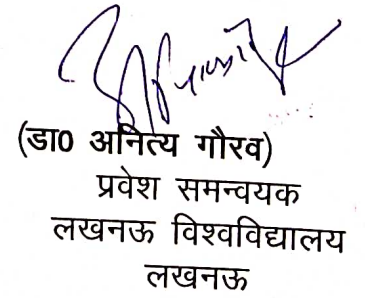 (डा0 अनित्य गौरव)
प्रवेश समन्वयक
लखनऊ विश्वविद्यालय
लखनऊ